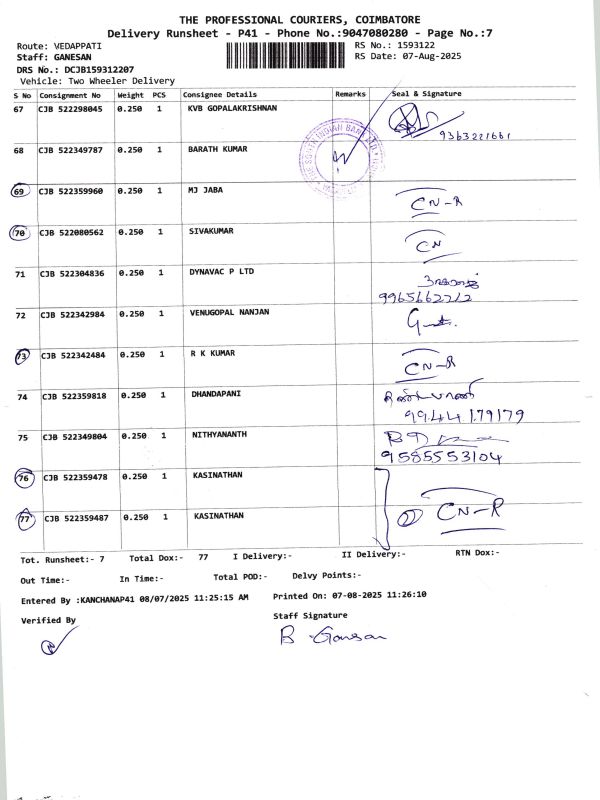 THE PROFESSIONAL COURIERS, COIMBATORE
Delivery Runsheet - P41 - Phone No.:9047080280 - Page No.:7
Route: VEDAPPATI
RS No.: 1593122
Staff: GANESAN
RS Date: 07-Aug-2025
DRS No.: DCJB159312207
Vehicle: Two Wheeler Delivery
S No Consignment No Weight PCS Consignee Details Remarks Seal & Signature
67 CJB 522298045 0.250 1 KVB GOPALAKRISHNAN
9363221661
68 CJB 522349787 0.250 1 BARATH KUMAR
69 CJB 522359960 0.250 1 MJ JABA CN-R
70 CJB 522080562 0.250 1 SIVAKUMAR CN
71 CJB 522304836 0.250 1 DYNAVAC P LTD
9965662212
72 CJB 522342984 0.250 1 VENUGOPAL NANJAN
73 CJB 522342484 0.250 1 R K KUMAR CN-R
74 CJB 522359818 0.250 1 DHANDAPANI தண்டபாணி
9944179179
75 CJB 522349804 0.250 1 NITHYANANTH
9585553104
76 CJB 522359478 0.250 1 KASINATHAN
77 CJB 522359487 0.250 1 KASINATHAN ② CN-R
Tot. Runsheet:- 7 Total Dox:- 77 I Delivery:- II Delivery:- RTN Dox:-
Out Time:- In Time:- Total POD:- Delvy Points:-
Entered By :KANCHANAP41 08/07/2025 11:25:15 AM Printed On: 07-08-2025 11:26:10
Verified By
Staff Signature
B Gansan